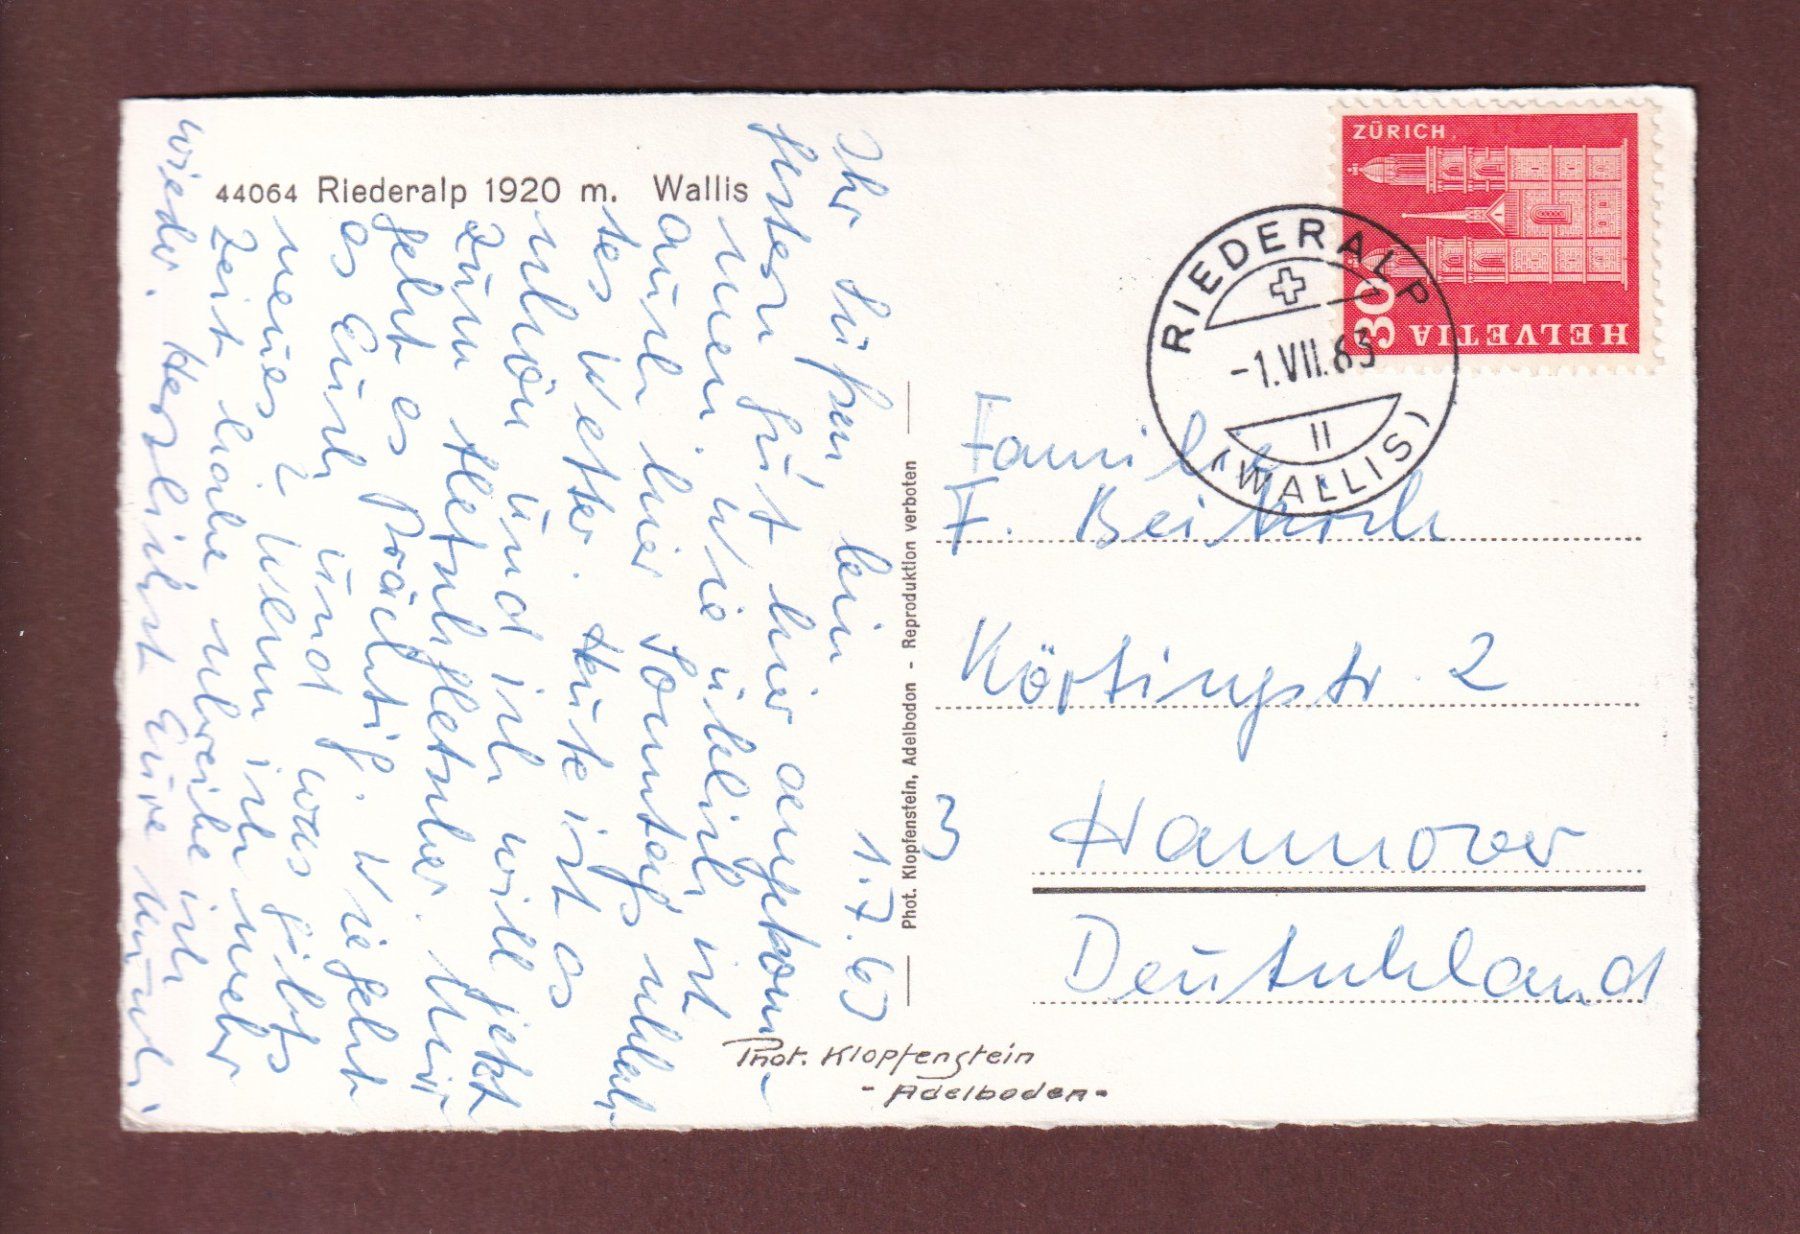 44064 Riederalp 1920 m. Wallis
Ihr Süßen, bin 1.7.63
gestern gut hier angekom-
men. Wie üblich ist
auch hier Sonntags schlech-
tes Wetter. Heute ist es
schön und ich will jetzt
zum Aletschgletscher. Mir
geht es prächtig. Wie geht
es Euch und was gibts
neues? Wenn ich mehr
Zeit habe schreibe ich
wieder. Herzlichst Eure
Phot. Klopfenstein, Adelboden - Reproduktion verboten
Phot. Klopfenstein
- Adelboden -
ZÜRICH.
30
HELVETIA
RIEDERALP
-1.VII.63
II
(WALLIS)
Familie
F. Beikirch
Körtingstr. 2
3 Hannover
Deutschland